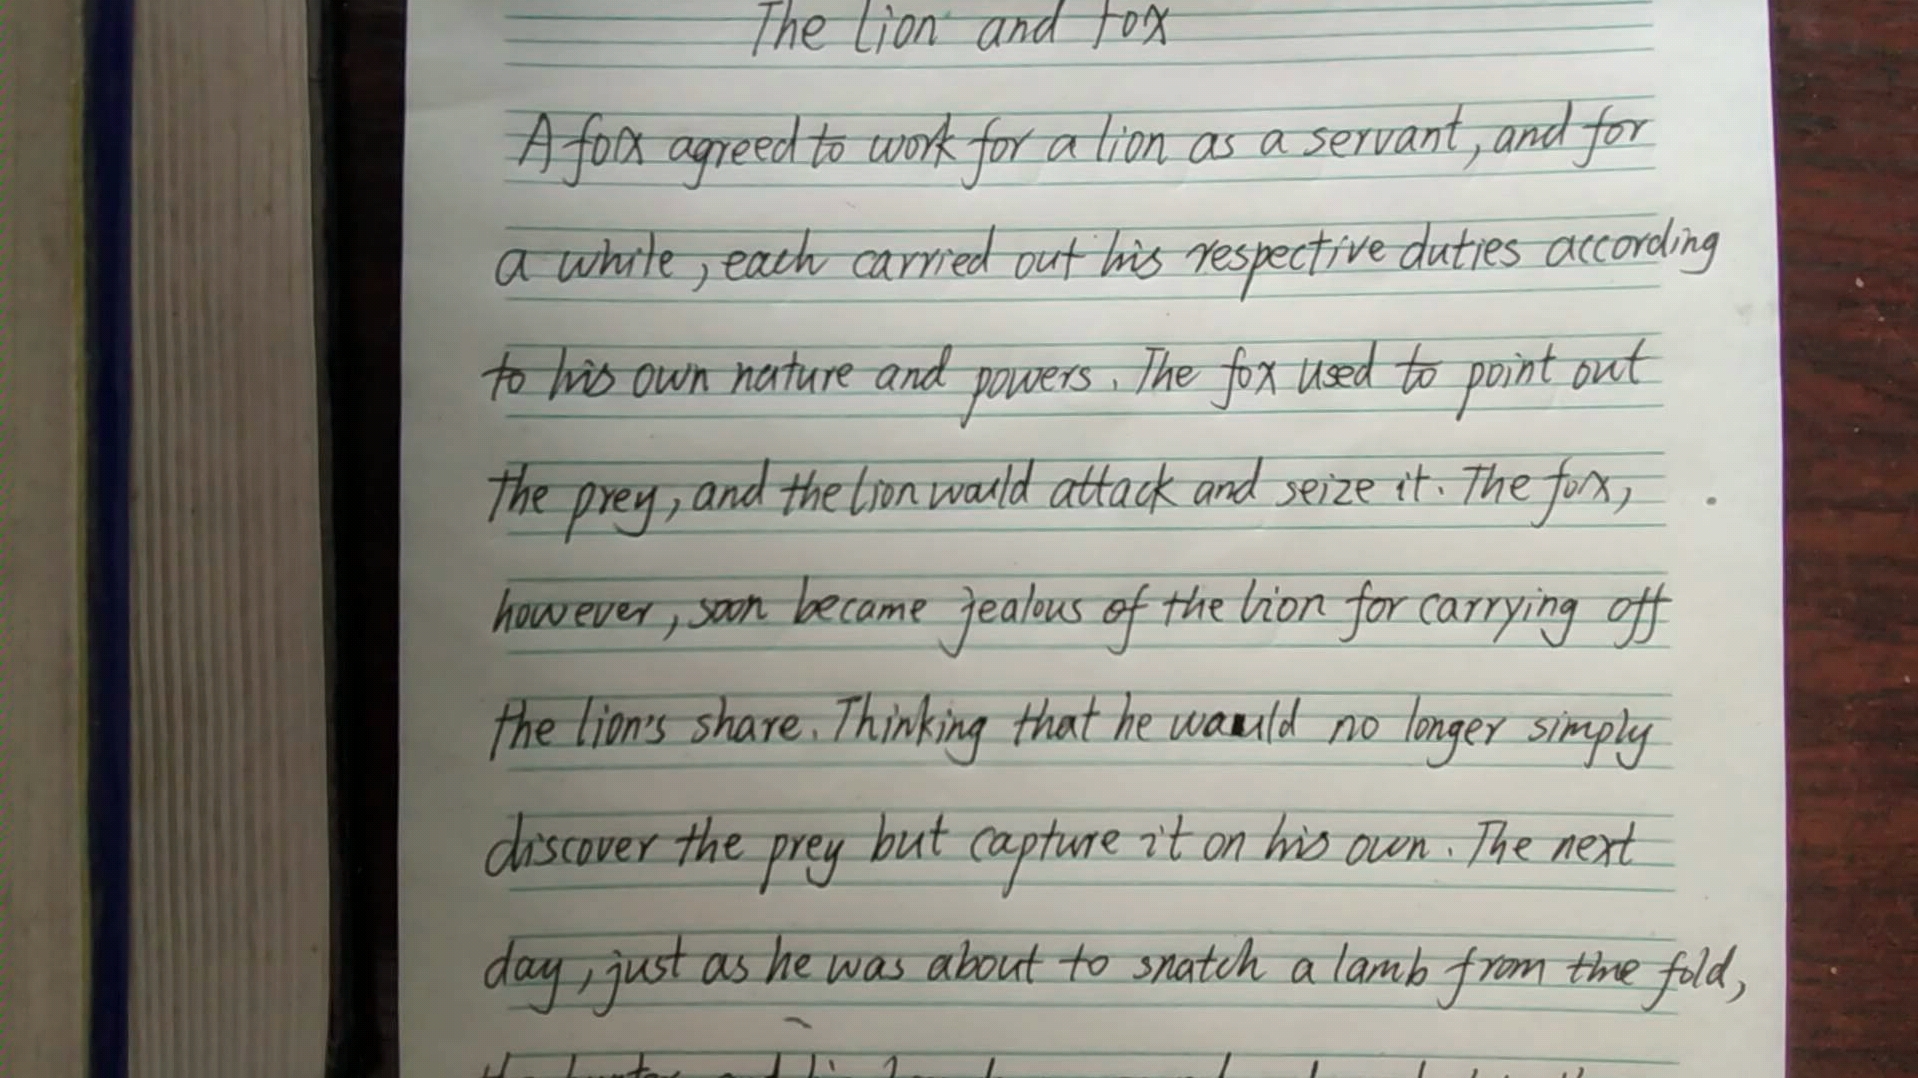 The Lion and Fox
A fox agreed to work for a lion as a servant, and for
a while, each carried out his respective duties according
to his own nature and powers. The fox used to point out
the prey, and the lion would attack and seize it. The fox,
however, soon became jealous of the lion for carrying off
the lion's share. Thinking that he would no longer simply
discover the prey but capture it on his own. The next
day, just as he was about to snatch a lamb from the fold,